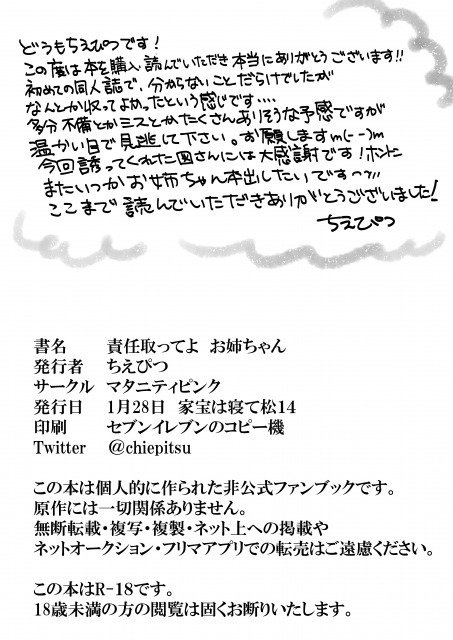 どうもちえぴつです!
この度は本を購入、読んでいただき本当にありがとうございます!!
初めての同人誌で、分からないことだらけでしたが
なんとか収ってよかったという感じです....
多分不備とかミスとかたくさんありそうな予感ですが
温かい目で見逃して下さい。お願いしますm(--)m
今回誘ってくれた図さんには大感謝です!ホントに
またいつかお姉ちゃん本出したいですっ
ここまで読んでいただきありがとうございました!
ちえぴつ
書名 責任取ってよ お姉ちゃん
発行者 ちえぴつ
サークル マタニティピンク
発行日 1月28日 家宝は寝て松14
印刷 セブンイレブンのコピー機
Twitter @chiepitsu
この本は個人的に作られた非公式ファンブックです。
原作には一切関係ありません。
無断転載・複写・複製・ネット上への掲載や
ネットオークション・フリマアプリでの転売はご遠慮ください。
この本はR-18です。
18歳未満の方の閲覧は固くお断りいたします。